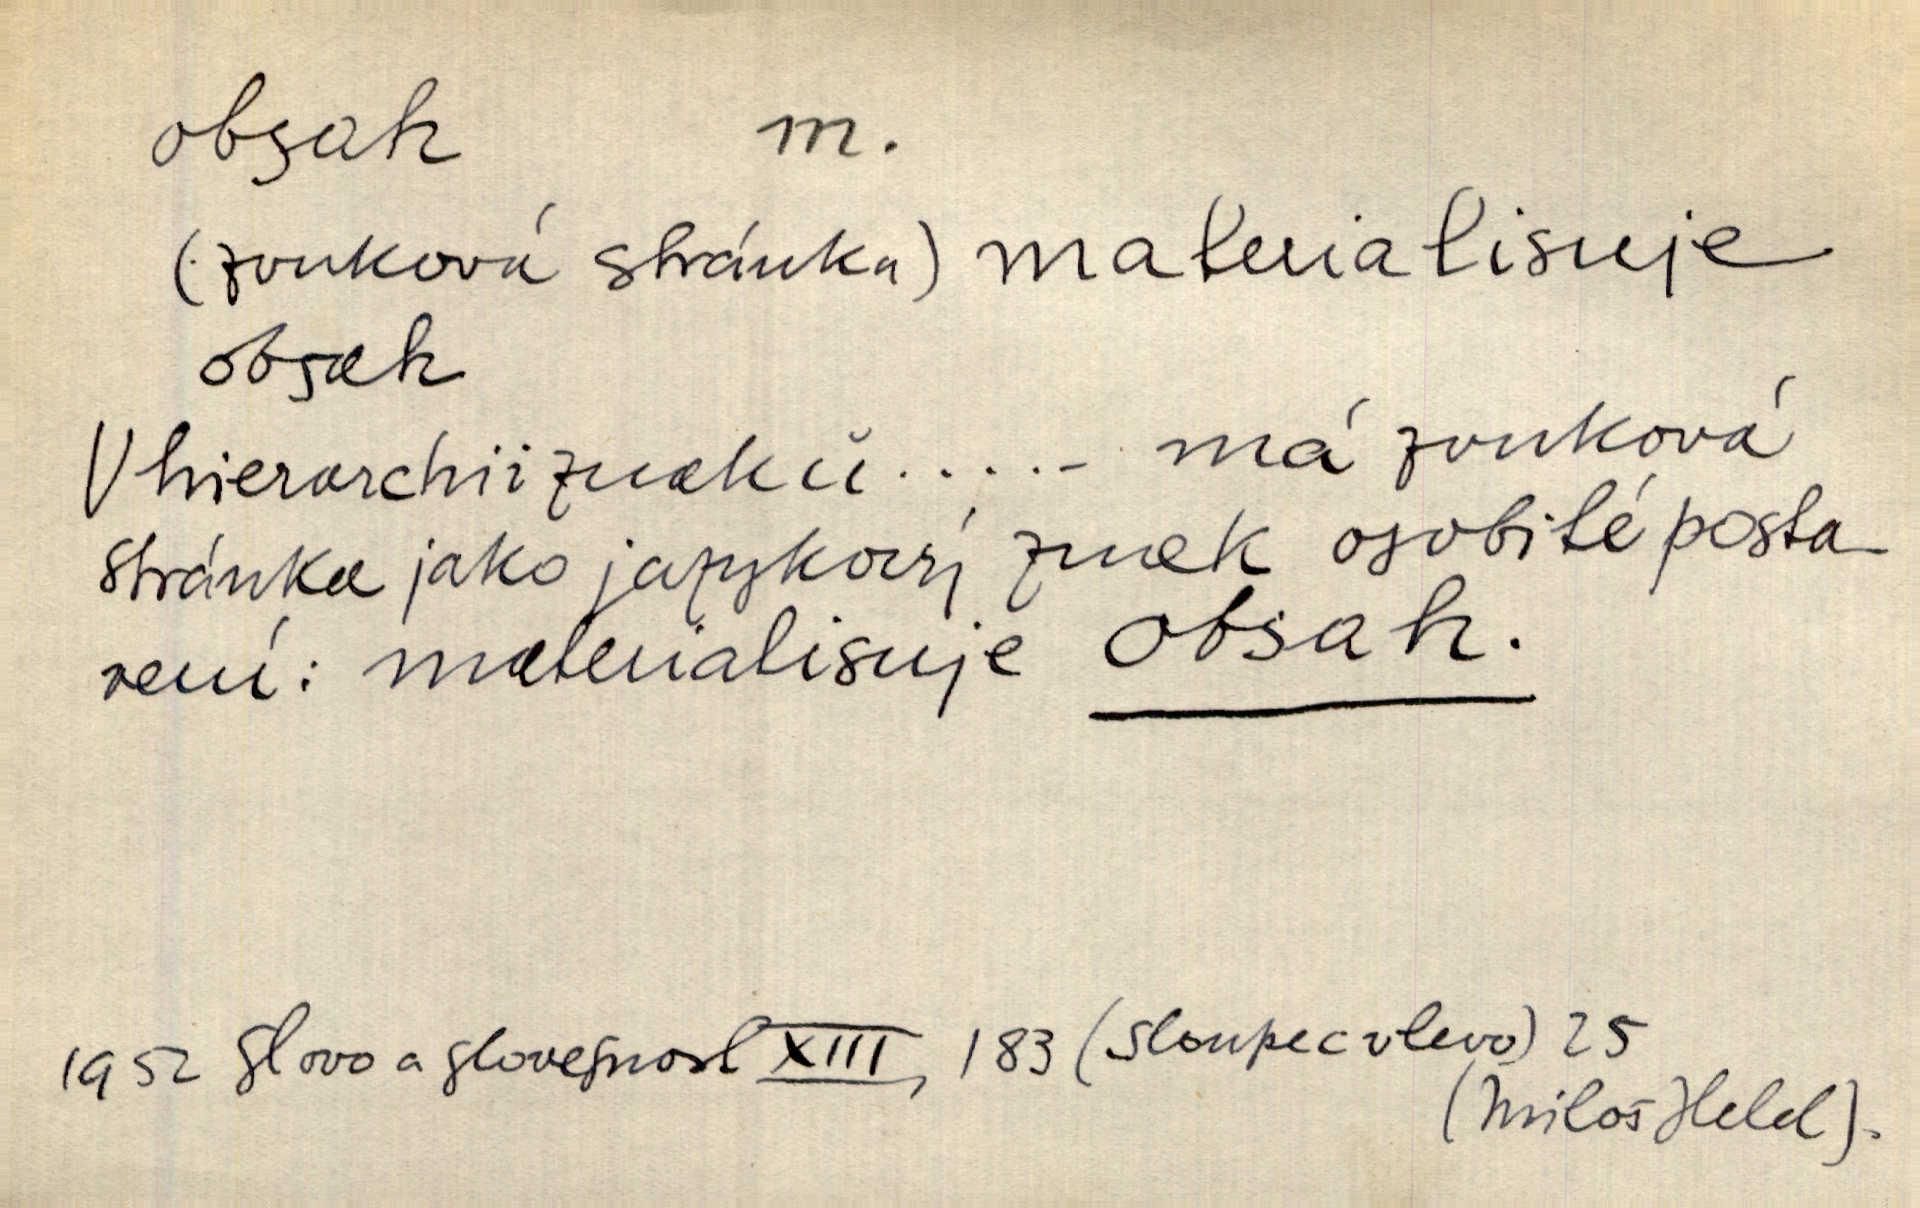 obsah m.
(zvuková stránka) materialisuje
obsah
V hierarchii znaků ..... má zvuková
stránka jako jazykový znak osobité posta
vení: materialisuje obsah.
1952 Slovo a slovesnost XIII, 183 (sloupec vlevo) 25
(Miloš Held).